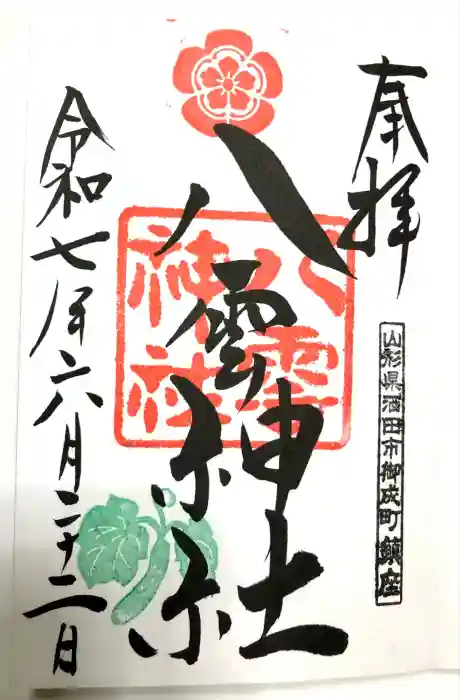 奉拝
山形県酒田市御成町鎮座
八雲神社
八雲
神社
令和七年六月二十二日